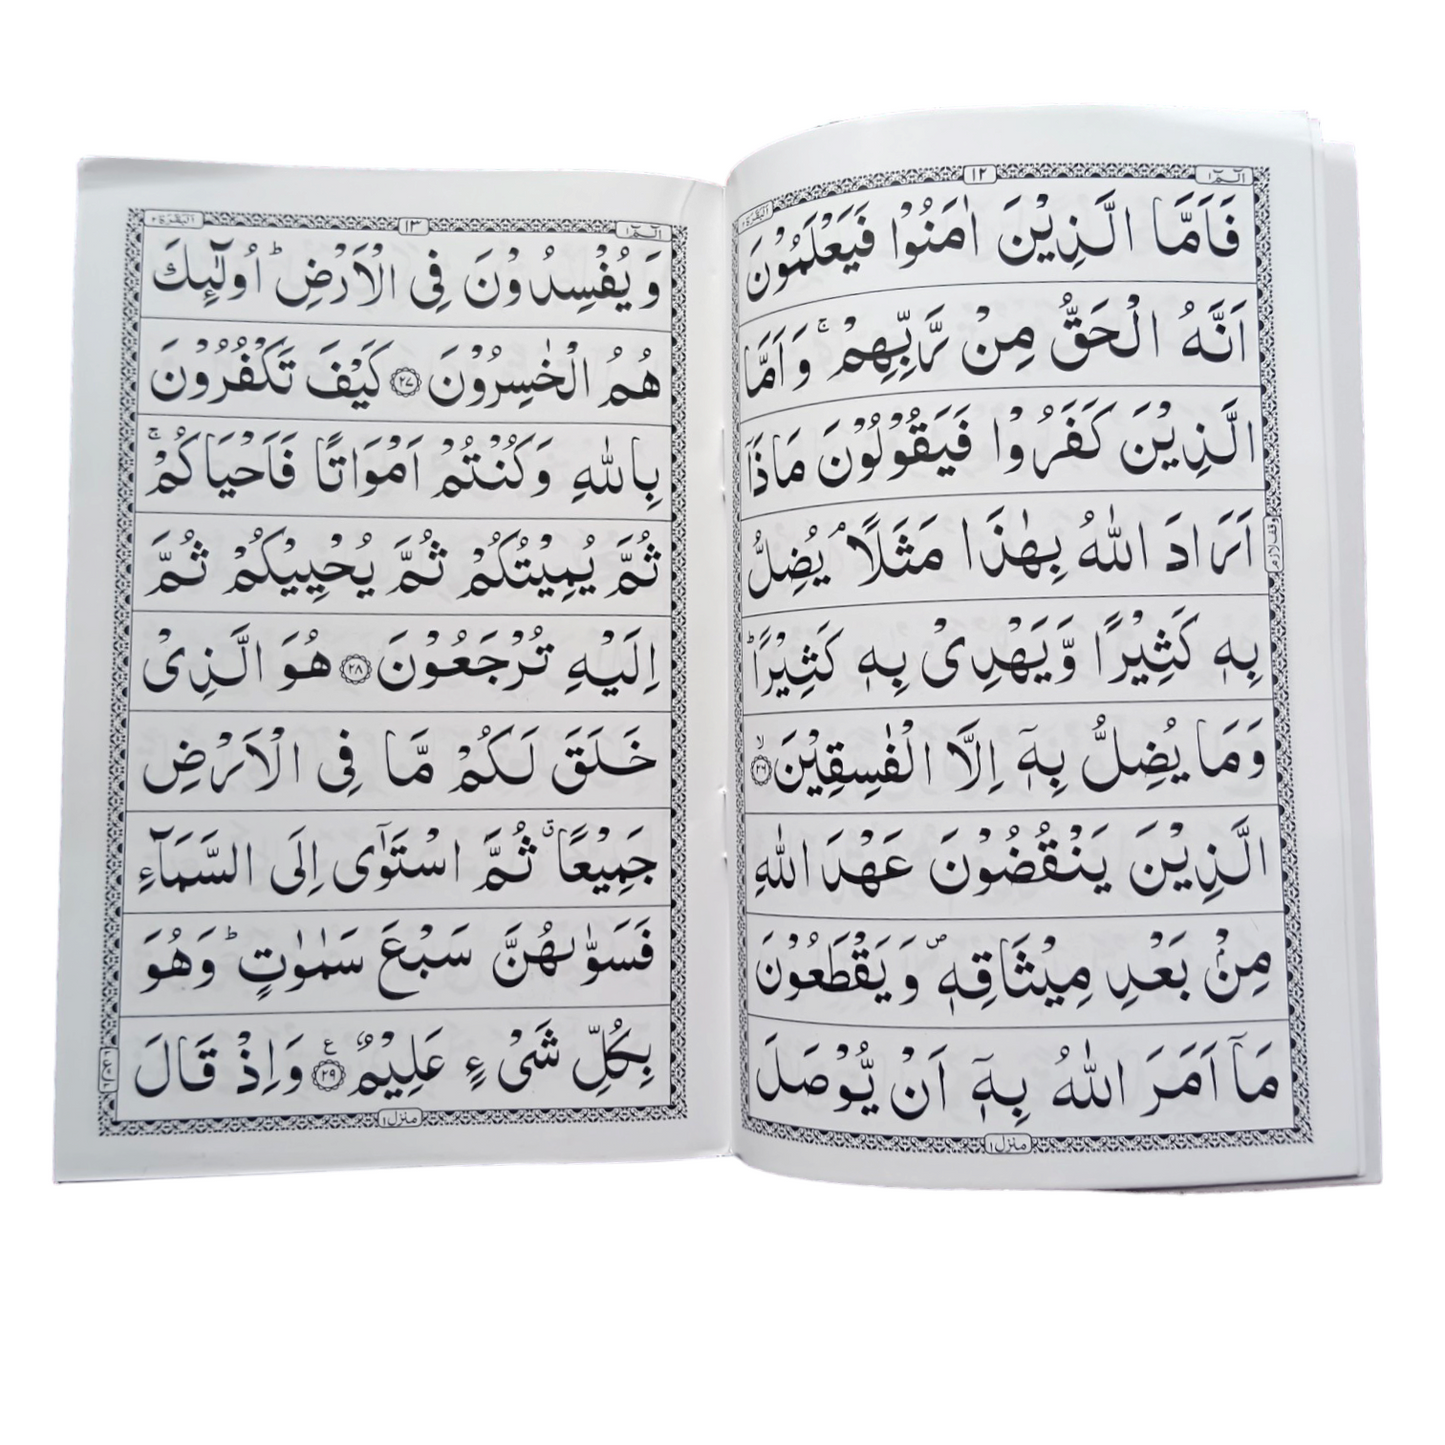 الٓمّٓ ١
١٢
البقرة ٢
فَاَمَّا الَّذِیْنَ اٰمَنُوْا فَیَعْلَمُوْنَ
اَنَّهُ الْحَقُّ مِنْ رَّبِّهِمْ ۚ وَ اَمَّا
الَّذِیْنَ كَفَرُوْا فَیَقُوْلُوْنَ مَاذَاۤ
اَرَادَ اللّٰهُ بِهٰذَا مَثَلًا ۘ یُضِلُّ
وقف لازم
بِهٖ كَثِیْرًا وَّ یَهْدِیْ بِهٖ كَثِیْرًا ؕ
وَ مَا یُضِلُّ بِهٖۤ اِلَّا الْفٰسِقِیْنَ ۙ ٢٦
الَّذِیْنَ یَنْقُضُوْنَ عَهْدَ اللّٰهِ
مِنْۢ بَعْدِ مِیْثَاقِهٖ ۪ وَ یَقْطَعُوْنَ
مَاۤ اَمَرَ اللّٰهُ بِهٖۤ اَنْ یُّوْصَلَ
منزل ١
الٓمّٓ ١
١٣
البقرة ٢
وَ یُفْسِدُوْنَ فِی الْاَرْضِ ؕ اُولٰٓىِٕكَ
هُمُ الْخٰسِرُوْنَ ٢٧ كَیْفَ تَكْفُرُوْنَ
بِاللّٰهِ وَ كُنْتُمْ اَمْوَاتًا فَاَحْیَاكُمْ ۚ
ثُمَّ یُمِیْتُكُمْ ثُمَّ یُحْیِیْكُمْ ثُمَّ
اِلَیْهِ تُرْجَعُوْنَ ٢٨ هُوَ الَّذِیْ
خَلَقَ لَكُمْ مَّا فِی الْاَرْضِ
جَمِیْعًا ۗ ثُمَّ اسْتَوٰۤی اِلَی السَّمَآءِ
فَسَوّٰىهُنَّ سَبْعَ سَمٰوٰتٍ ؕ وَ هُوَ
بِكُلِّ شَیْءٍ عَلِیْمٌ ٢٩ ع وَ اِذْ قَالَ
منزل ١